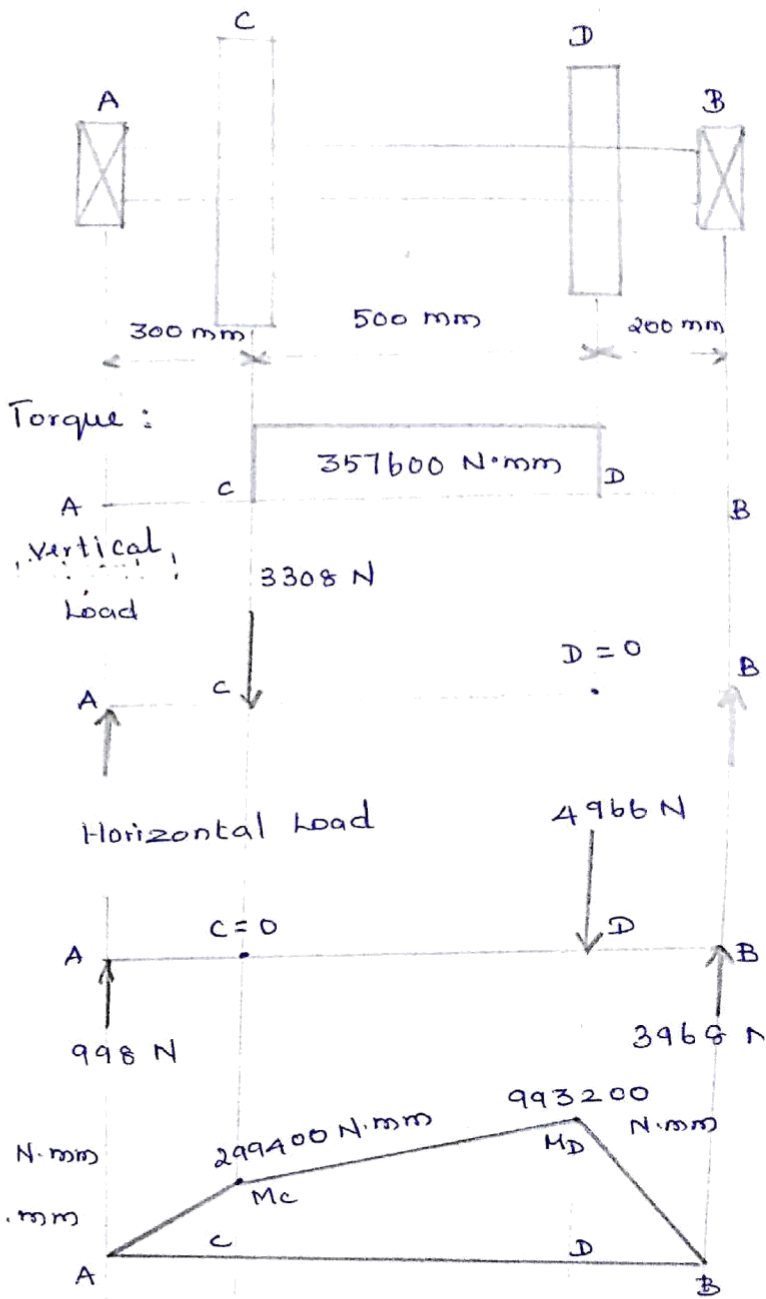 C
D
A
B
300 mm
500 mm
200 mm
Torque :
357600 N·mm
A
C
D
B
Vertical
Load
3308 N
D = 0
A
C
B
Horizontal Load
4966 N
C = 0
A
D
B
998 N
3968 N
993200
N·mm
299400 N·mm
MD
N·mm
Mc
·mm
C
D
A
B